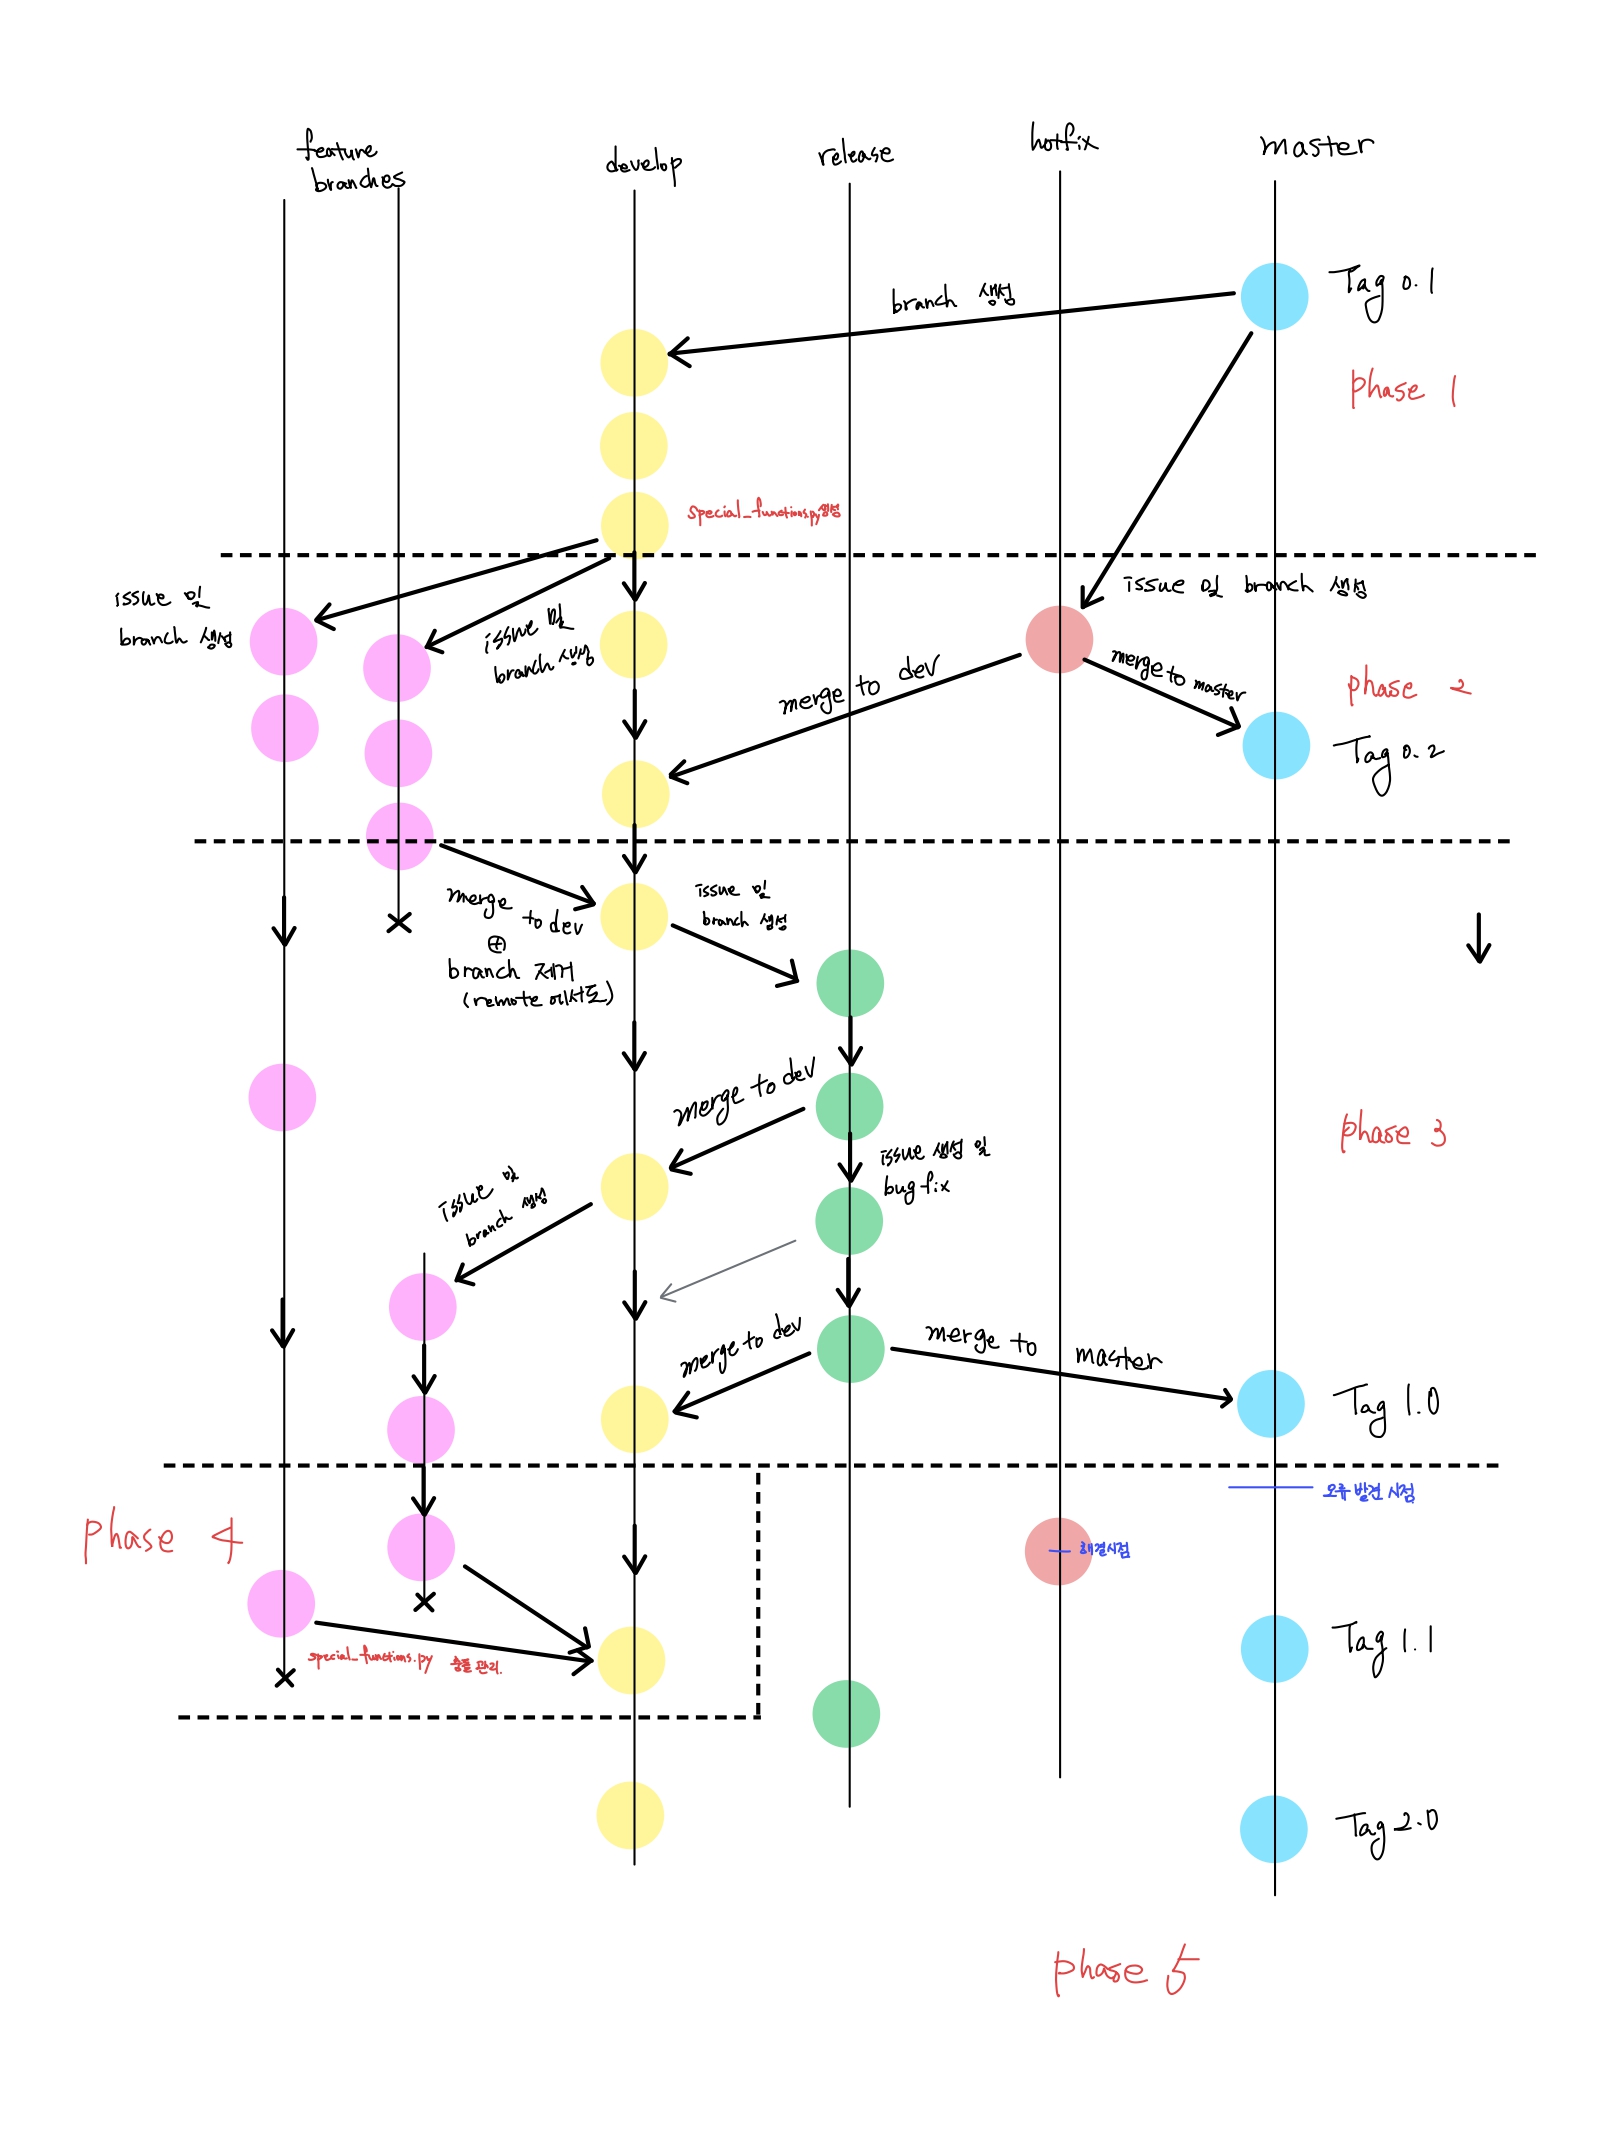 feature
branches
develop
release
hotfix
master
Tag 0.1
branch 생성
phase 1
special_functions.py생성
issue 및
branch 생성
issue 및
branch 생성
issue 및 branch 생성
merge to dev
merge to master
phase 2
Tag 0.2
merge
to dev
⊕
branch 제거
(remote 에서도)
issue 및
branch 생성
merge to dev
issue 생성 및
bugfix
phase 3
issue 및
branch 생성
merge to dev
merge to master
Tag 1.0
오류 발견 시점
phase 4
해결시점
special_functions.py 충돌 관리.
Tag 1.1
Tag 2.0
phase 5